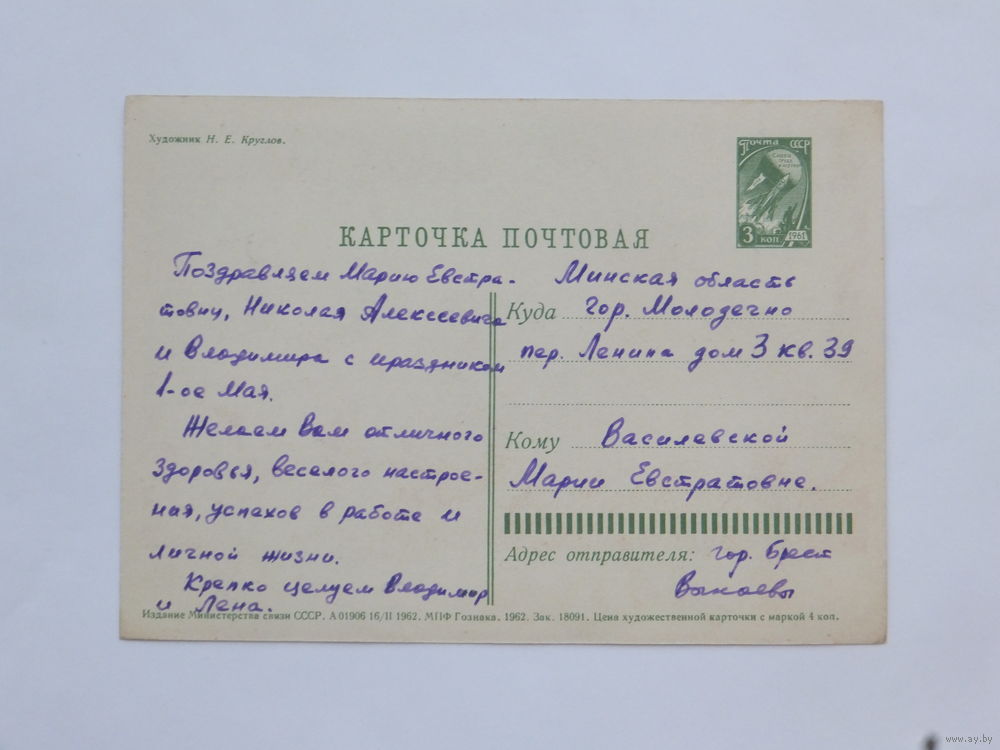 Художник Н. Е. Круглов.
Почта СССР
3 коп. 1961
КАРТОЧКА ПОЧТОВАЯ
Поздравляем Марию Евстра-
товну, Николая Алексеевича
и Владимира с праздником
1-ое Мая.
Желаем Вам отличного
здоровья, веселого настрое-
ния, успехов в работе и
личной жизни.
Крепко целуем Владимир
и Лена.
Минская область
Куда гор. Молодечно
пер. Ленина дом 3 кв. 39
Кому Василевской
Марии Евстратовне.
Адрес отправителя: гор. Брест
Издание Министерства связи СССР. А 01906 16/II 1962. МПФ Гознака. 1962. Зак. 18091. Цена художественной карточки с маркой 4 коп.
www.ay.by